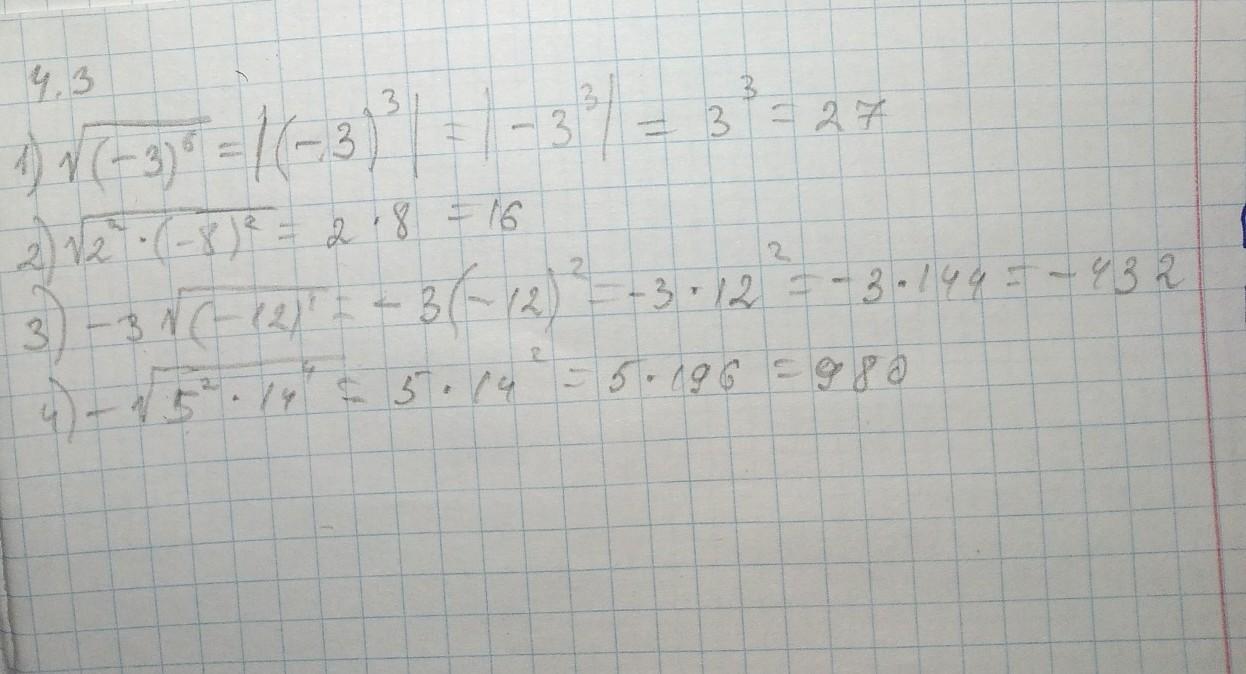 4.3
1) √(-3)⁶ = |(-3)³| = |-3³| = 3³ = 27
2) √2²·(-8)² = 2·8 = 16
3) -3√(-12)⁴ = -3(-12)² = -3·12² = -3·144 = -432
4) -√5²·14⁴ = 5·14² = 5·196 = 980